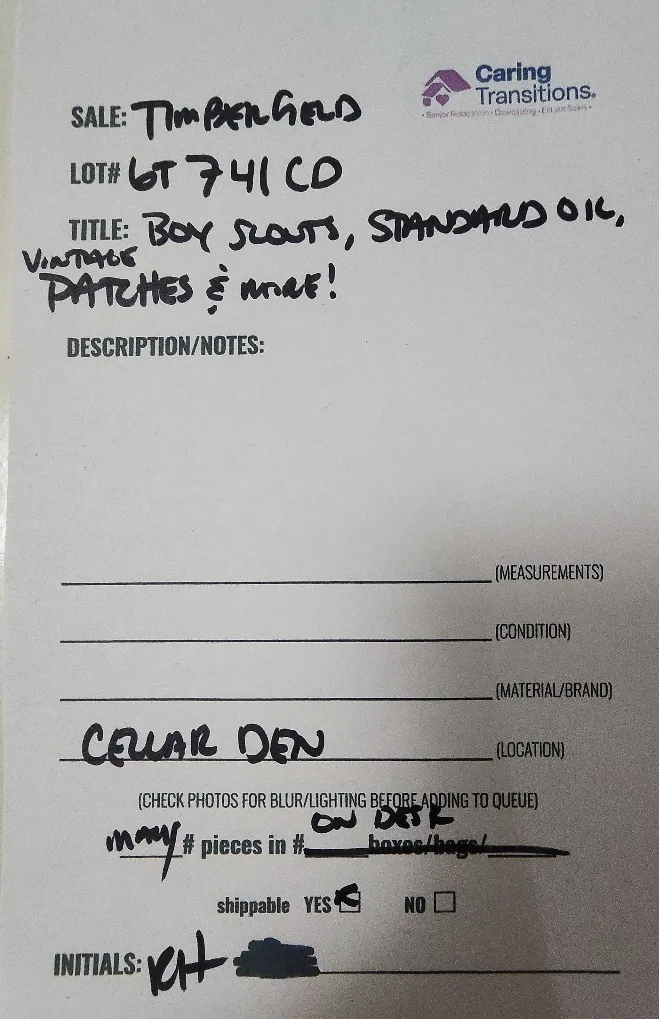 Caring
Transitions.
• Senior Relocation • Downsizing • Estate Sales •
SALE: TIMBERGELD
LOT# GT 741 CD
TITLE: BOY SCOUTS, STANDARD OIL,
VINTAGE
PATCHES & MORE!
DESCRIPTION/NOTES:
(MEASUREMENTS)
(CONDITION)
(MATERIAL/BRAND)
CELLAR DEN (LOCATION)
(CHECK PHOTOS FOR BLUR/LIGHTING BEFORE ADDING TO QUEUE)
ON DESK
many # pieces in # boxes/bags/
shippable YES NO
INITIALS: RH